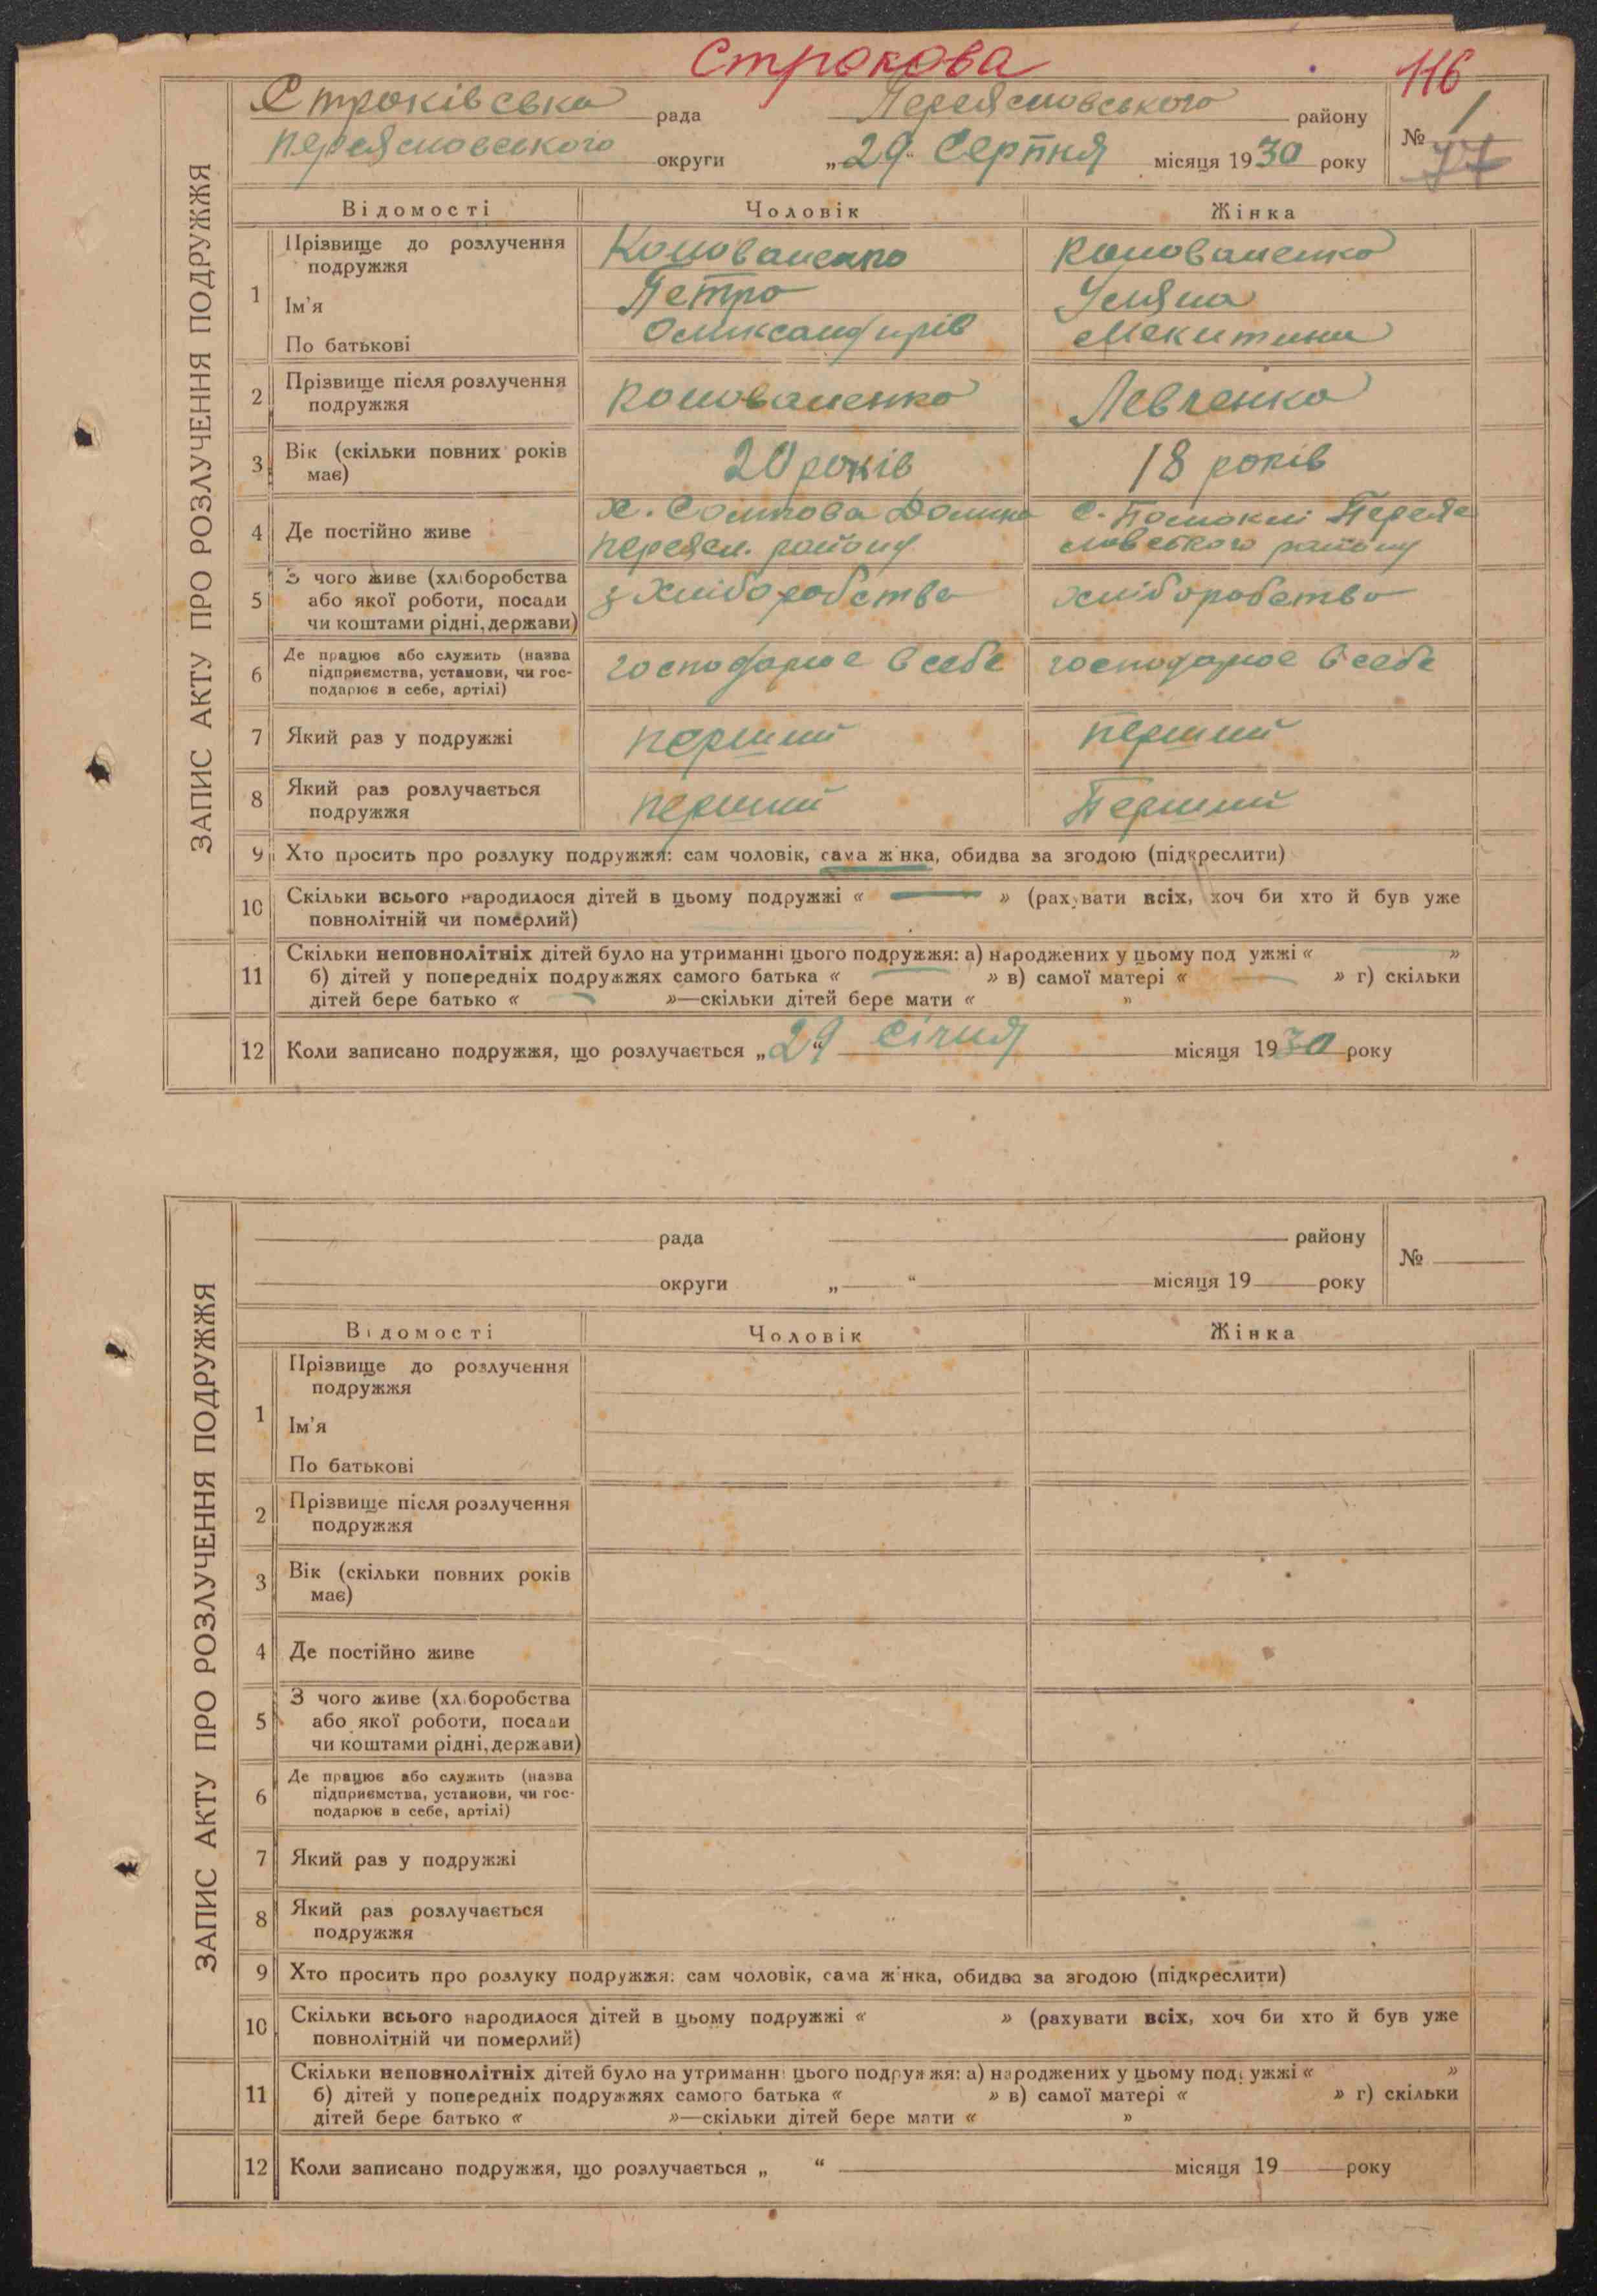 Строкова
116
Строківська рада Переясловського району
Переясловського округи „29“ Серпня місяця 1930 року
№ 1
77
ЗАПИС АКТУ ПРО РОЗЛУЧЕННЯ ПОДРУЖЖЯ
Відомості Чоловік Жінка
1 Прізвище до розлучення подружжя Коноваленко Коноваленко
Ім'я Петро Уляна
По батькові Олександрів Мекитина
2 Прізвище після розлучення подружжя Коноваленко Левченко
3 Вік (скільки повних років має) 20 років 18 років
4 Де постійно живе х. Солпова Долина С. Помоклі Перея
переясл. району словського району
5 З чого живе (хліборобства або якої роботи, посади чи коштами рідні, держави) з хліборобства хліборобство
6 Де працює або служить (назва підприємства, установи, чи господарює в себе, артілі) господарює в себе господарює в себе
7 Який раз у подружжі перший перший
8 Який раз розлучається подружжя перший Перший
9 Хто просить про розлуку подружжя: сам чоловік, сама жінка, обидва за згодою (підкреслити)
10 Скільки всього народилося дітей в цьому подружжі « — » (рахувати всіх, хоч би хто й був уже
повнолітній чи померлий)
11 Скільки неповнолітніх дітей було на утриманні цього подружжя: а) народжених у цьому подружжі « — »
б) дітей у попередніх подружжях самого батька « — » в) самої матері « — » г) скільки
дітей бере батько « — »—скільки дітей бере мати « »
12 Коли записано подружжя, що розлучається „29“ Січня місяця 1930 року
ЗАПИС АКТУ ПРО РОЗЛУЧЕННЯ ПОДРУЖЖЯ
рада району
округи „ “ місяця 19 року
№
Відомості Чоловік Жінка
1 Прізвище до розлучення
подружжя
Ім'я
По батькові
2 Прізвище після розлучення
подружжя
3 Вік (скільки повних років
має)
4 Де постійно живе
5 З чого живе (хліборобства
або якої роботи, посади
чи коштами рідні, держави)
6 Де працює або служить (назва
підприємства, установи, чи гос-
подарює в себе, артілі)
7 Який раз у подружжі
8 Який раз розлучається
подружжя
9 Хто просить про розлуку подружжя: сам чоловік, сама жінка, обидва за згодою (підкреслити)
10 Скільки всього народилося дітей в цьому подружжі « » (рахувати всіх, хоч би хто й був уже
повнолітній чи померлий)
11 Скільки неповнолітніх дітей було на утриманні цього подружжя: а) народжених у цьому подружжі « »
б) дітей у попередніх подружжях самого батька « » в) самої матері « » г) скільки
дітей бере батько « »—скільки дітей бере мати « »
12 Коли записано подружжя, що розлучається „ “ місяця 19 року